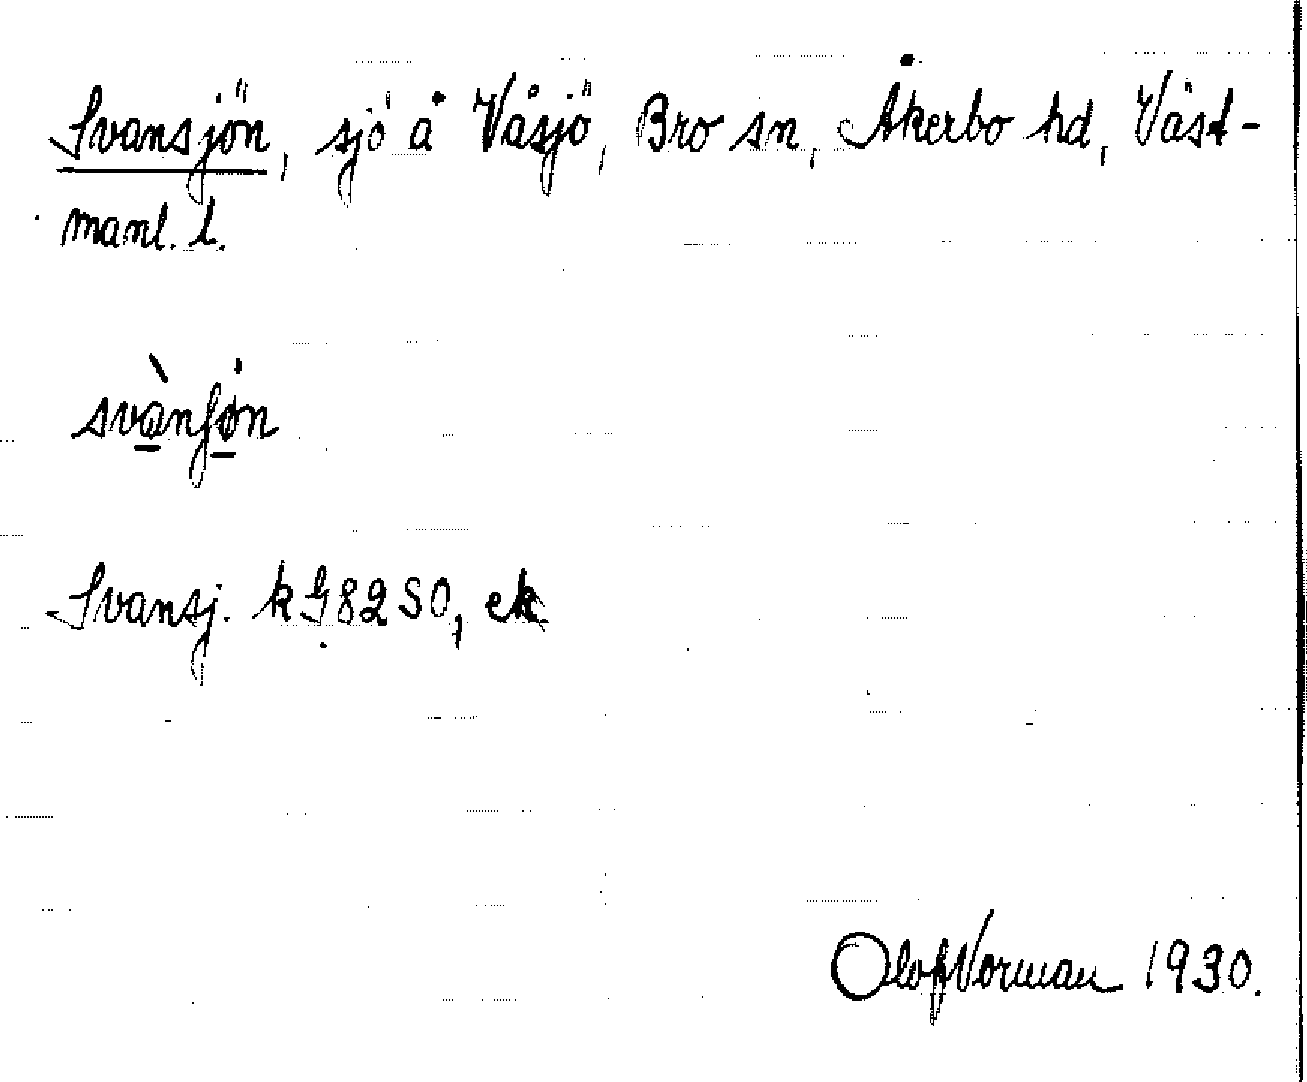 Svansjön, sjö å Våsjö, Bro sn, Åkerbo hd, Väst-
manl. l.
svànʃön
Svansj. kG82SO, ek
Olof Norman 1930.